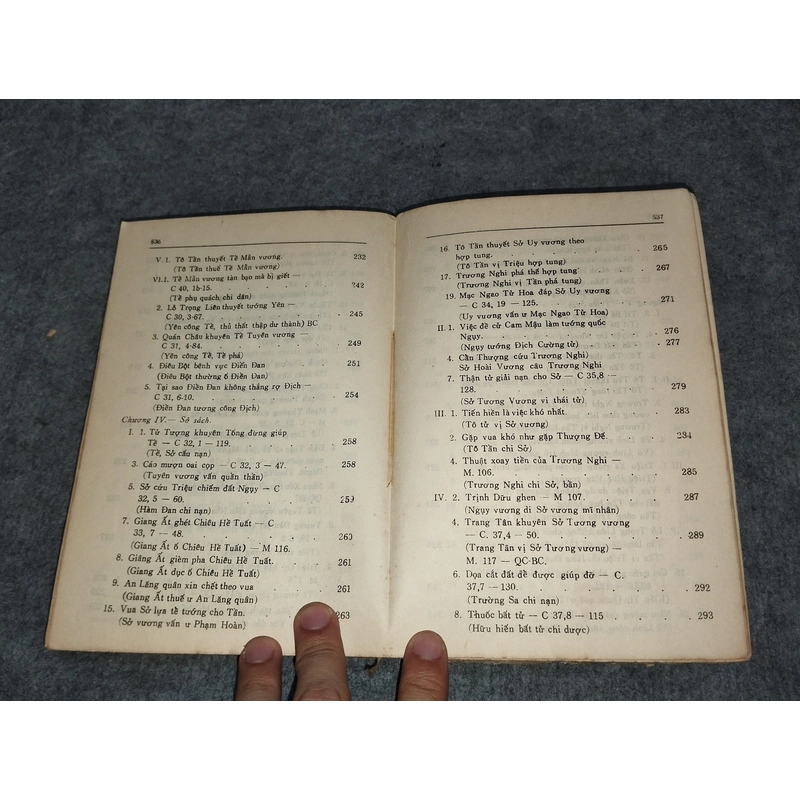 536
V. 1. Tô Tần thuyết Tề Mẫn vương. 232
(Tô Tần thuế Tề Mẫn vương)
VI.1. Tề Mẫn vương tàn bạo mà bị giết —
C 40, 1b-15. 242
(Tề phụ quách, chi dân)
2. Lỗ Trọng Liên thuyết tướng Yên —
C 30, 3-67. 245
(Yên công Tề, thủ thất thập dư thành) BC
3. Quán Châu khuyên Tề Tuyên vương —
C 31, 4-84. 249
(Yên công Tề, Tề phá)
4. Điêu Bột bênh vực Điền Đan 251
(Điêu Bột thường ố Điền Đan)
5. Tại sao Điền Đan không thắng rợ Địch —
C 31, 6-10. 254
(Điền Đan tương công Địch)
Chương IV.— Sở sách.
I. 1. Tử Tượng khuyên Tống đừng giúp
Tề — C 32, 1 — 119. 258
(Tề, Sở cấu nạn)
3. Cáo mượn oai cọp — C 32, 3 — 47. 258
(Tuyên vương vấn quần thần)
5. Sở cứu Triệu chiếm đất Ngụy — C
32, 5 — 60. 259
(Hàm Đan chi nạn)
7. Giang Ất ghét Chiêu Hề Tuất — C
33, 7 — 48. 260
(Giang Ất ố Chiêu Hề Tuất) — M 116.
8. Giang Ất gièm pha Chiêu Hề Tuất. 261
(Giang Ất dục ố Chiêu Hề Tuất)
9. An Lăng quân xin chết theo vua 261
(Giang Ất thuế ư An Lăng quân)
15. Vua Sở lựa tể tướng cho Tần. 263
(Sở vương vấn ư Phạm Hoàn)
537
16. Tô Tần thuyết Sở Uy vương theo
hợp tung. 265
(Tô Tần vị Triệu hợp tung)
17. Trương Nghi phá thế hợp tung 267
(Trương Nghi vị Tần phá tung)
19. Mạc Ngao Tử Hoa đáp Sở Uy vương
— C 34, 19 — 125. 271
(Uy vương vấn ư Mạc Ngao Tử Hoa)
II. 1. Việc đề cử Cam Mậu làm tướng quốc
Ngụy. 276
(Ngụy tướng Địch Cường tử) 277
4. Cần Thượng cứu Trương Nghi)
Sở Hoài Vương câu Trương Nghi
7. Thận tử giải nạn cho Sở — C 35,8 —
128. 279
(Sở Tương Vương vi thái tử)
III. 1. Tiến hiền là việc khó nhất. 283
(Tô tử vị Sở vương)
2. Gặp vua khó như gặp Thượng Đế. 284
(Tô Tần chi Sở)
4. Thuật xoay tiền của Trương Nghi —
M. 106. 285
(Trương Nghi chi Sở, bần)
IV. 2. Trịnh Dữu ghen — M 107. 287
(Ngụy vương di Sở vương mĩ nhân)
4. Trang Tân khuyên Sở Tương vương
— C. 37,4 — 50. 289
(Trang Tân vị Sở Tương vương) —
M. 117 — QC·BC.
6. Dọa cắt đất để được giúp đỡ — C.
37,7 — 130. 292
(Trường Sa chi nạn)
8. Thuốc bất tử — C 37,8 — 115 293
(Hữu hiến bất tử chi dược)